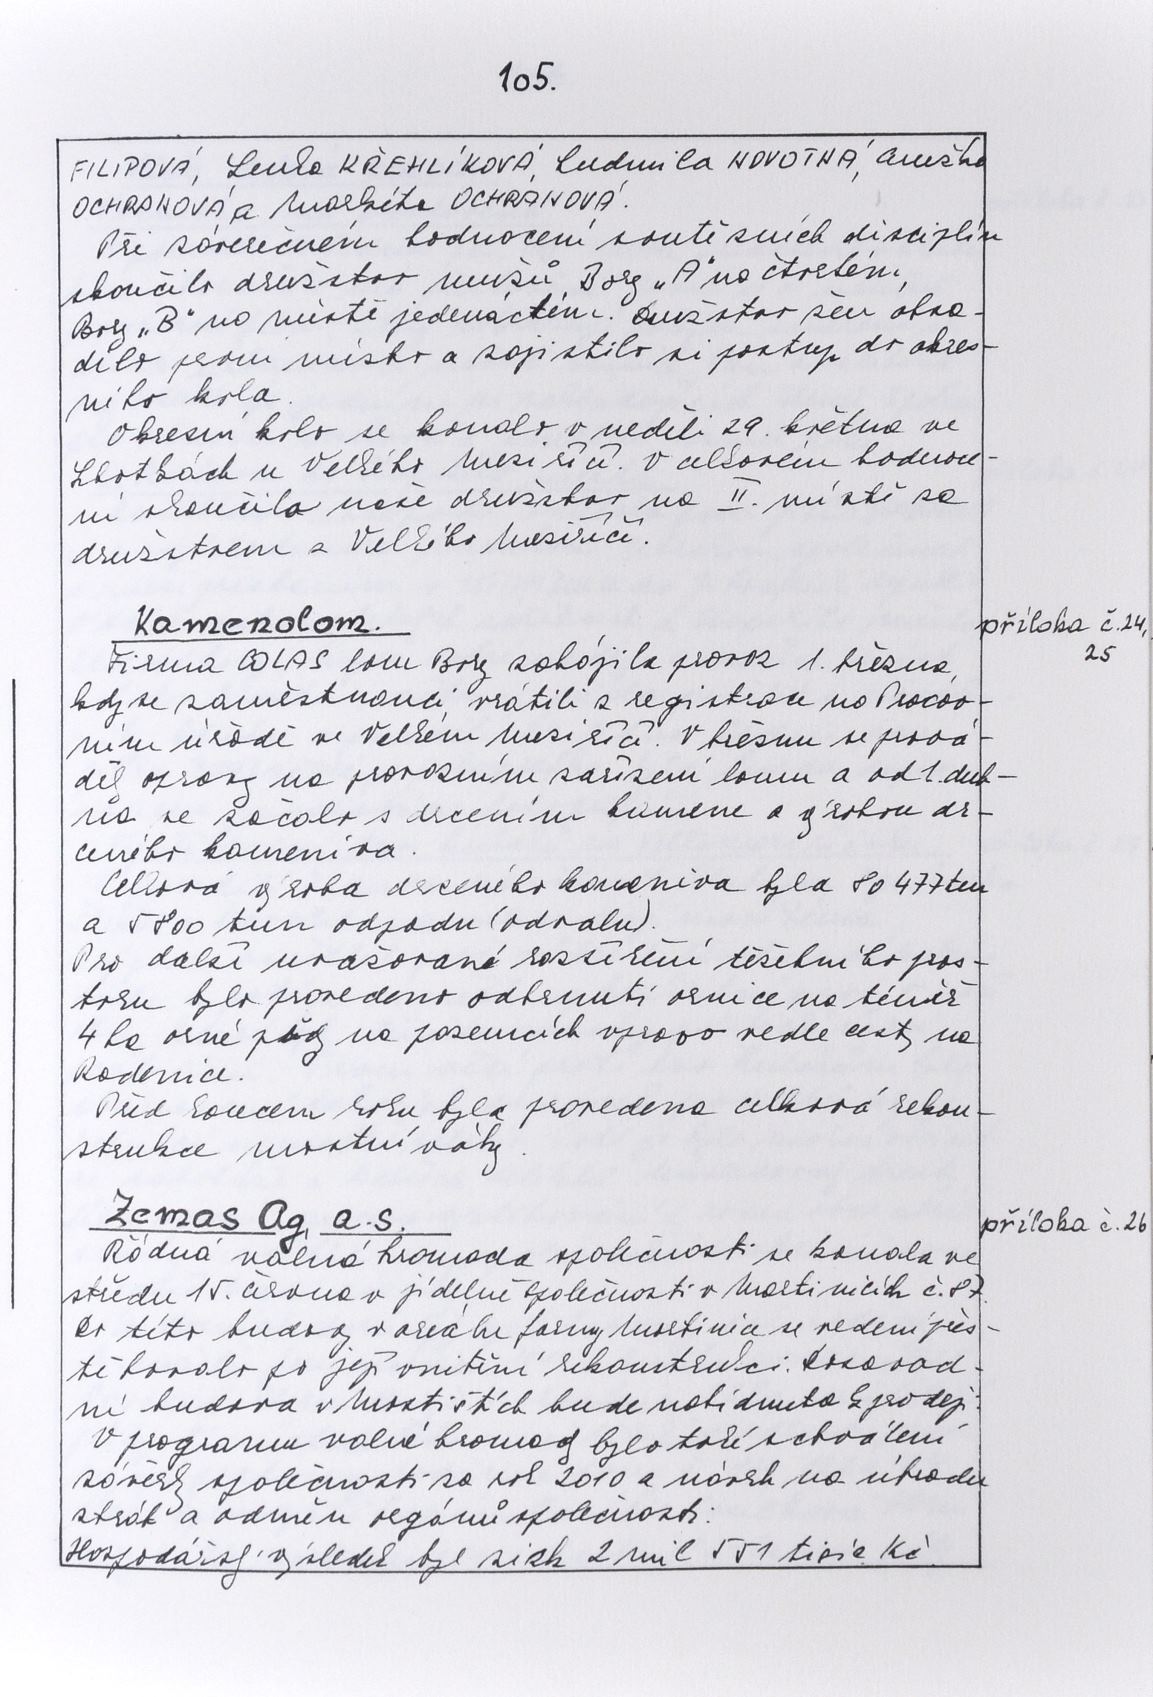 105.
FILIPOVÁ, Lenka KŘEHLÍKOVÁ, Ludmila NOVOTNÁ, Anežka
OCHRANOVÁ a Markéta OCHRANOVÁ.
Při závěrečném hodnocení soutěžních disciplín
skončilo družstvo mužů Bory „A" na čtvrtém,
Bory „B" na místě jedenáctém. Družstvo žen obsa-
dilo první místo a zajistilo si postup do okres-
ního kola.
Okresní kolo se konalo v neděli 29. května ve
Lhotkách u Velkého Meziříčí. V celkovém hodnoce-
ní skončilo naše družstvo na II. místě za
družstvem z Velkého Meziříčí.
Kamenolom.
příloha č. 24,
25
Firma COLAS lom Bory zahájila provoz 1. března,
kdy se zaměstnanci vrátili z registrace na Pracov-
ním úřadě ve Velkém Meziříčí. V březnu se prová-
děly opravy na provozním zařízení lomu a od 1. dub-
na se začalo s drcením kamene a výrobou dr-
ceného kameniva.
Celková výroba drceného kameniva byla 80 477 tun
a 5 800 tun odpadu (odvalu).
Pro další uvažované rozšíření těžebního pros-
toru bylo provedeno odhrnutí ornice na téměř
4 ha orné půdy na pozemcích vpravo vedle cesty na
Radenice.
Před koncem roku byla provedena celková rekon-
strukce mostní váhy.
Zemas Ag, a.s.
příloha č. 26
Řádná valná hromada společnosti se konala ve
středu 15. června v jídelně společnosti v Martinicích č. 87.
Do této budovy v areálu farmy Martinice se vedení přes-
těhovalo po její vnitřní rekonstrukci. Dosavad-
ní budova v Mostištích bude nabídnuta k prodeji.
V programu valné hromady bylo také schválení
závěrky společnosti za rok 2010 a návrh na úhradu
ztrát a odměn orgánů společnosti.
Hospodářský výsledek byl zisk 2 mil 551 tisíc Kč.